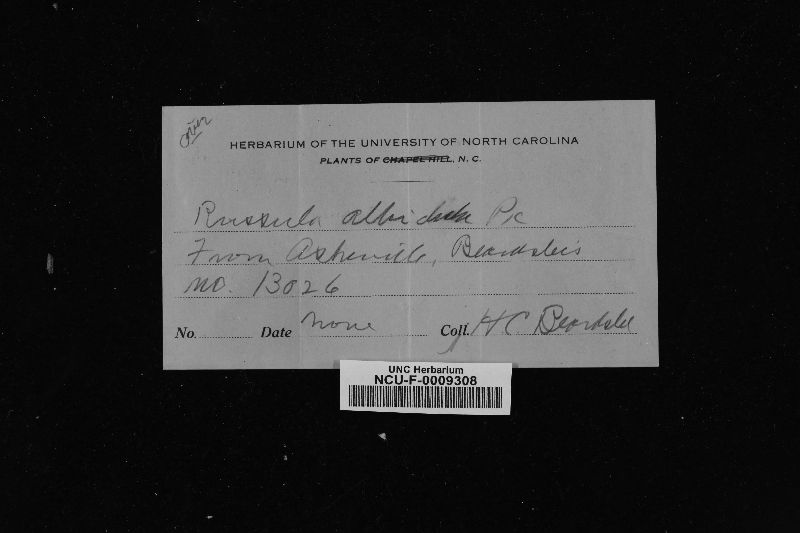 over
HERBARIUM OF THE UNIVERSITY OF NORTH CAROLINA
PLANTS OF CHAPEL HILL, N. C.
Russula albidula Pk
From Asheville, Beardslee's
no. 13026
No. Date none Coll. H C Beardslee
UNC Herbarium
NCU-F-0009308